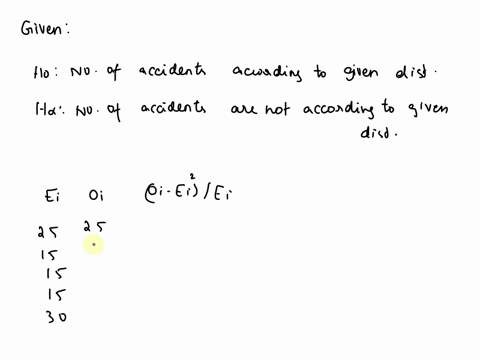 Given:
Ho: No. of accidents acording to given dist.
Hα: No. of accidents are not according to given
dist.
Ei Oi (Oi-Ei)²/Ei
25 25
15
15
15
30